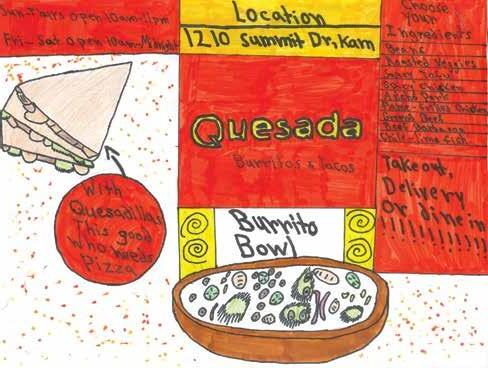 Sun-Thurs open 10am-11pm
Fri-Sat open 10am-Midnight
Location
1210 Summit Dr, Kam
Choose
Your
Ingredients
Beans
Roasted Veggies
Spicy Chicken
Ground Beef
Beef Barbacoa
Chile-lime Fish
Quesada
Burritos & tacos
Take out,
Delivery
Or dine in
!!!!!!!!!!!!
With
Quesadillas
This good
Who needs
Pizza
Burrito
Bowl